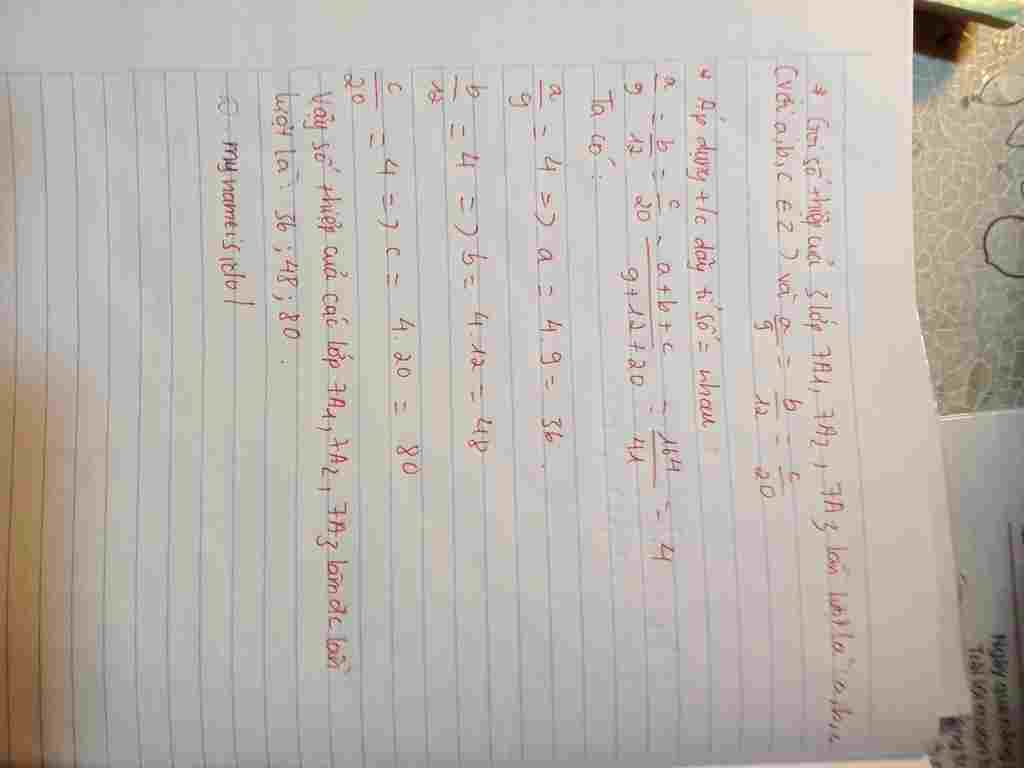 * Gọi số thiệp của 3 lớp 7A1, 7A2, 7A3 lần lượt là: a, b, c
(với a, b, c ∈ Z) và a/9 = b/12 = c/20
* Áp dụng t/c dãy tỉ số = nhau:
a/9 = b/12 = c/20 = a+b+c/9+12+20 = 164/41 = 4
Ta có:
a/9 = 4 => a = 4.9 = 36.
b/12 = 4 => b = 4.12 = 48
c/20 = 4 => c = 4.20 = 80
Vậy số thiệp của các lớp 7A1, 7A2, 7A3 làm đc lần
lượt là: 36; 48; 80.
mynameisidol